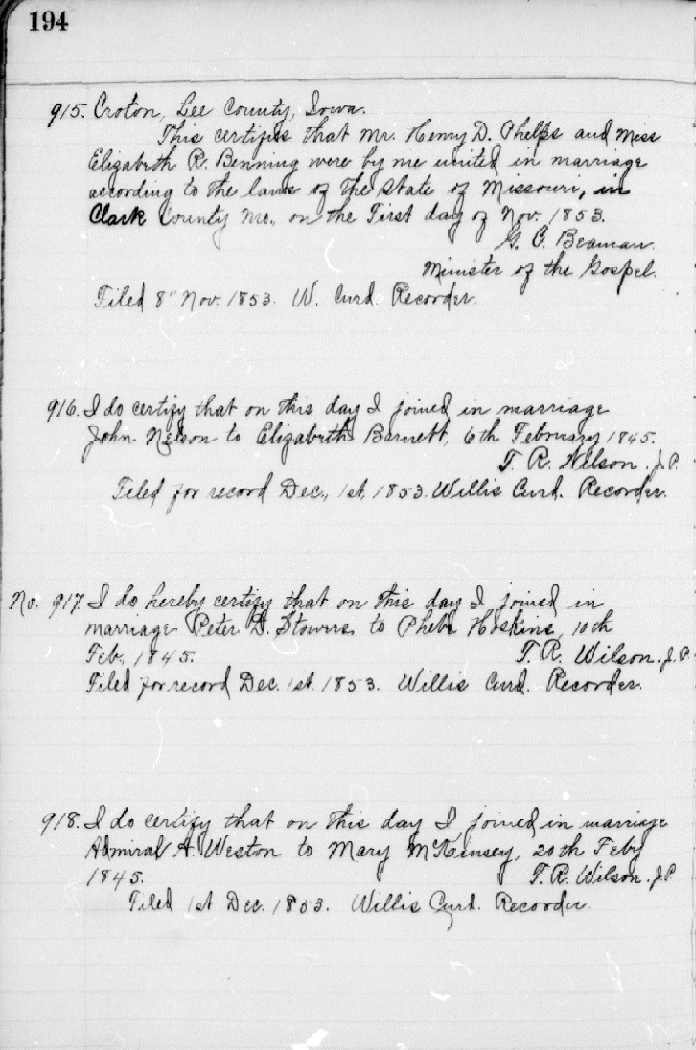 194
915. Croton, Lee County, Iowa.
This certifies that Mr. Henry D. Phelps and Miss
Elizabeth R. Benning were by me united in marriage
according to the laws of the State of Missouri, in
Clark County Mo., on the First day of Nov. 1853.
G. C. Beaman.
Minister of the Gospel.
Filed 8" Nov. 1853. W. Curd. Recorder.
916. I do certify that on this day I joined in marriage
John Nelson to Elizabeth Barnett, 6th February 1845.
T. R. Wilson. J.P.
Filed for record Dec., 1st, 1853. Willis Curd. Recorder.
No. 917. I do hereby certify that on this day I joined in
marriage Peter D. Stowers to Phebe Hoskins, 10th
Feb, 1845. T. R. Wilson. J.P.
Filed for record Dec. 1st. 1853. Willis Curd. Recorder.
918. I do certify that on this day I joined in marriage
Admiral A. Weston to Mary McKinsey, 20th Feby
1845. T. R. Wilson. J.P.
Filed 1st Dec. 1853. Willis Curd. Recorder.